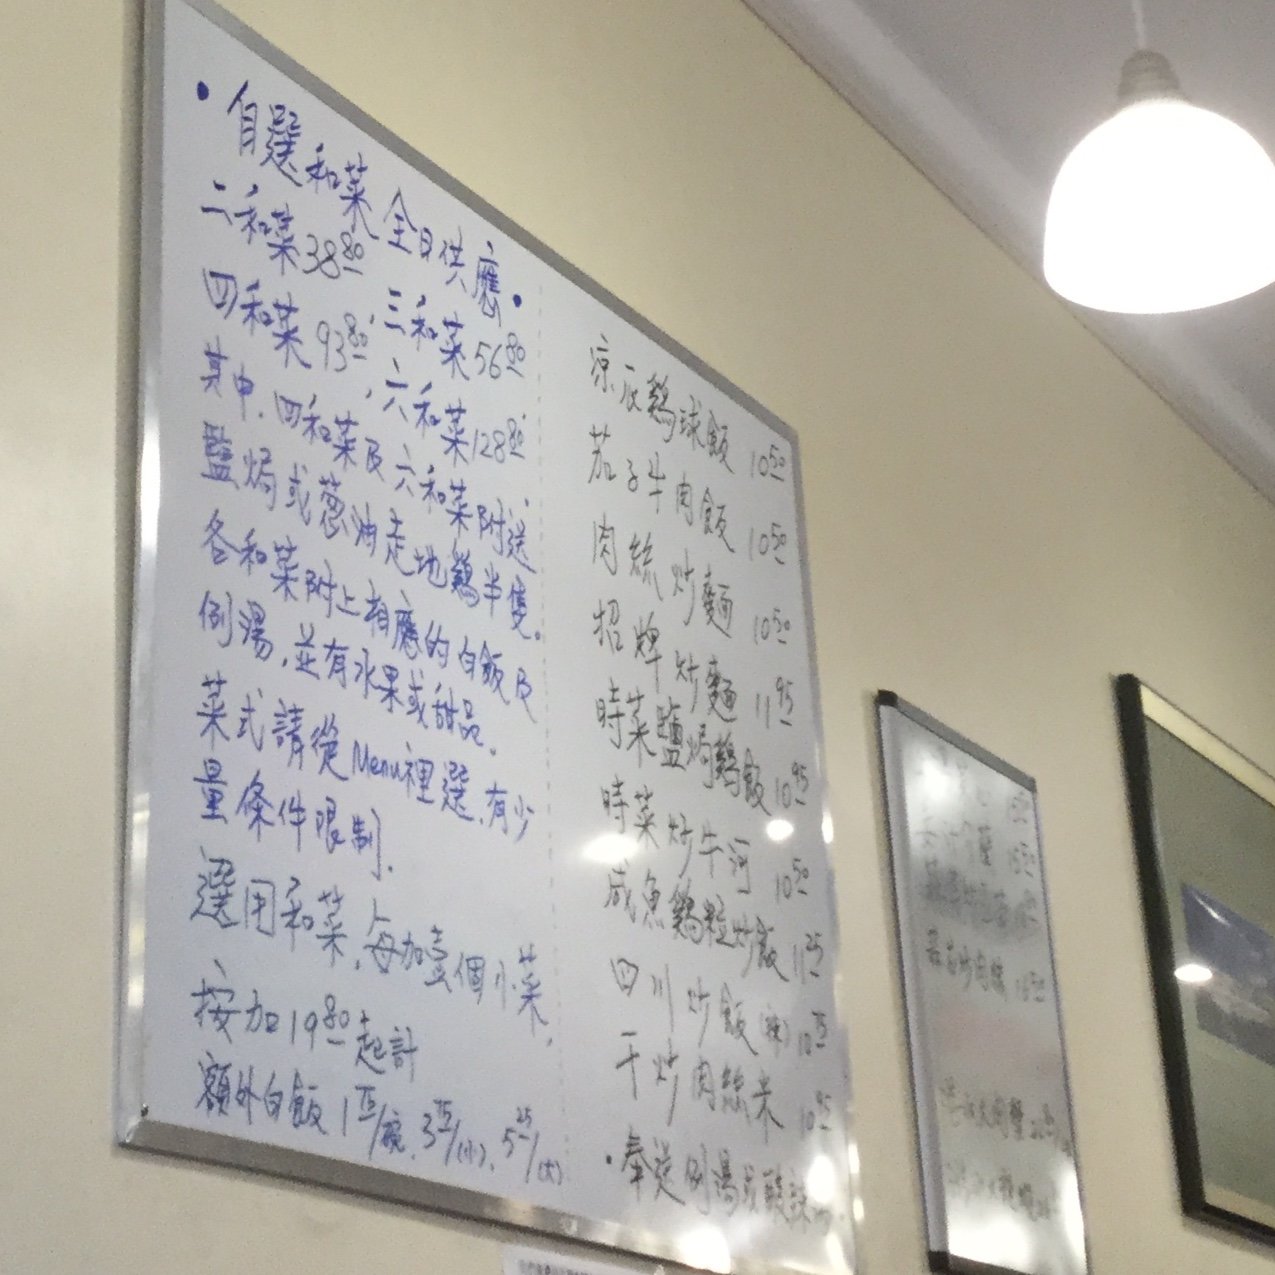 •自選和菜全日供應•
二和菜38.80,三和菜56.80
四和菜93.80,六和菜128.80
其中.四和菜及六和菜附送
鹽焗或蔥油走地鷄半隻。
各和菜附上相應的白飯及
例湯,並有水果或甜品.
菜式請從Menu裡選,有少
量條件限制.
選用和菜,每加壹個小菜,
按加19.80起計
額外白飯 1.75/碗,3.75/(小),5.25/(大)
凉瓜鷄球飯 10.50
茄子牛肉飯 10.50
肉絲炒麵 10.50
招牌炒麵 11.95
時菜鹽焗鷄飯 10.95
時菜炒牛河 10.50
咸魚鷄粒炒飯 11.25
四川炒飯(辣) 10.75
干炒肉絲米 10.95
•奉送例湯或酸辣
炒肉絲